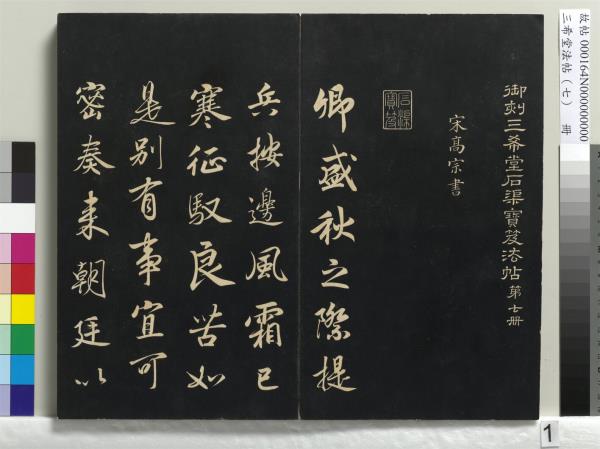 御刻三希堂石渠寶笈法帖第七冊
宋高宗書
石渠寶笈
卿盛秋之際提
兵按邊風霜已
寒征馭良苦如
是别有事宜可
密奏来朝廷以
故帖 000164N000000000
三希堂法帖（七） 冊
1